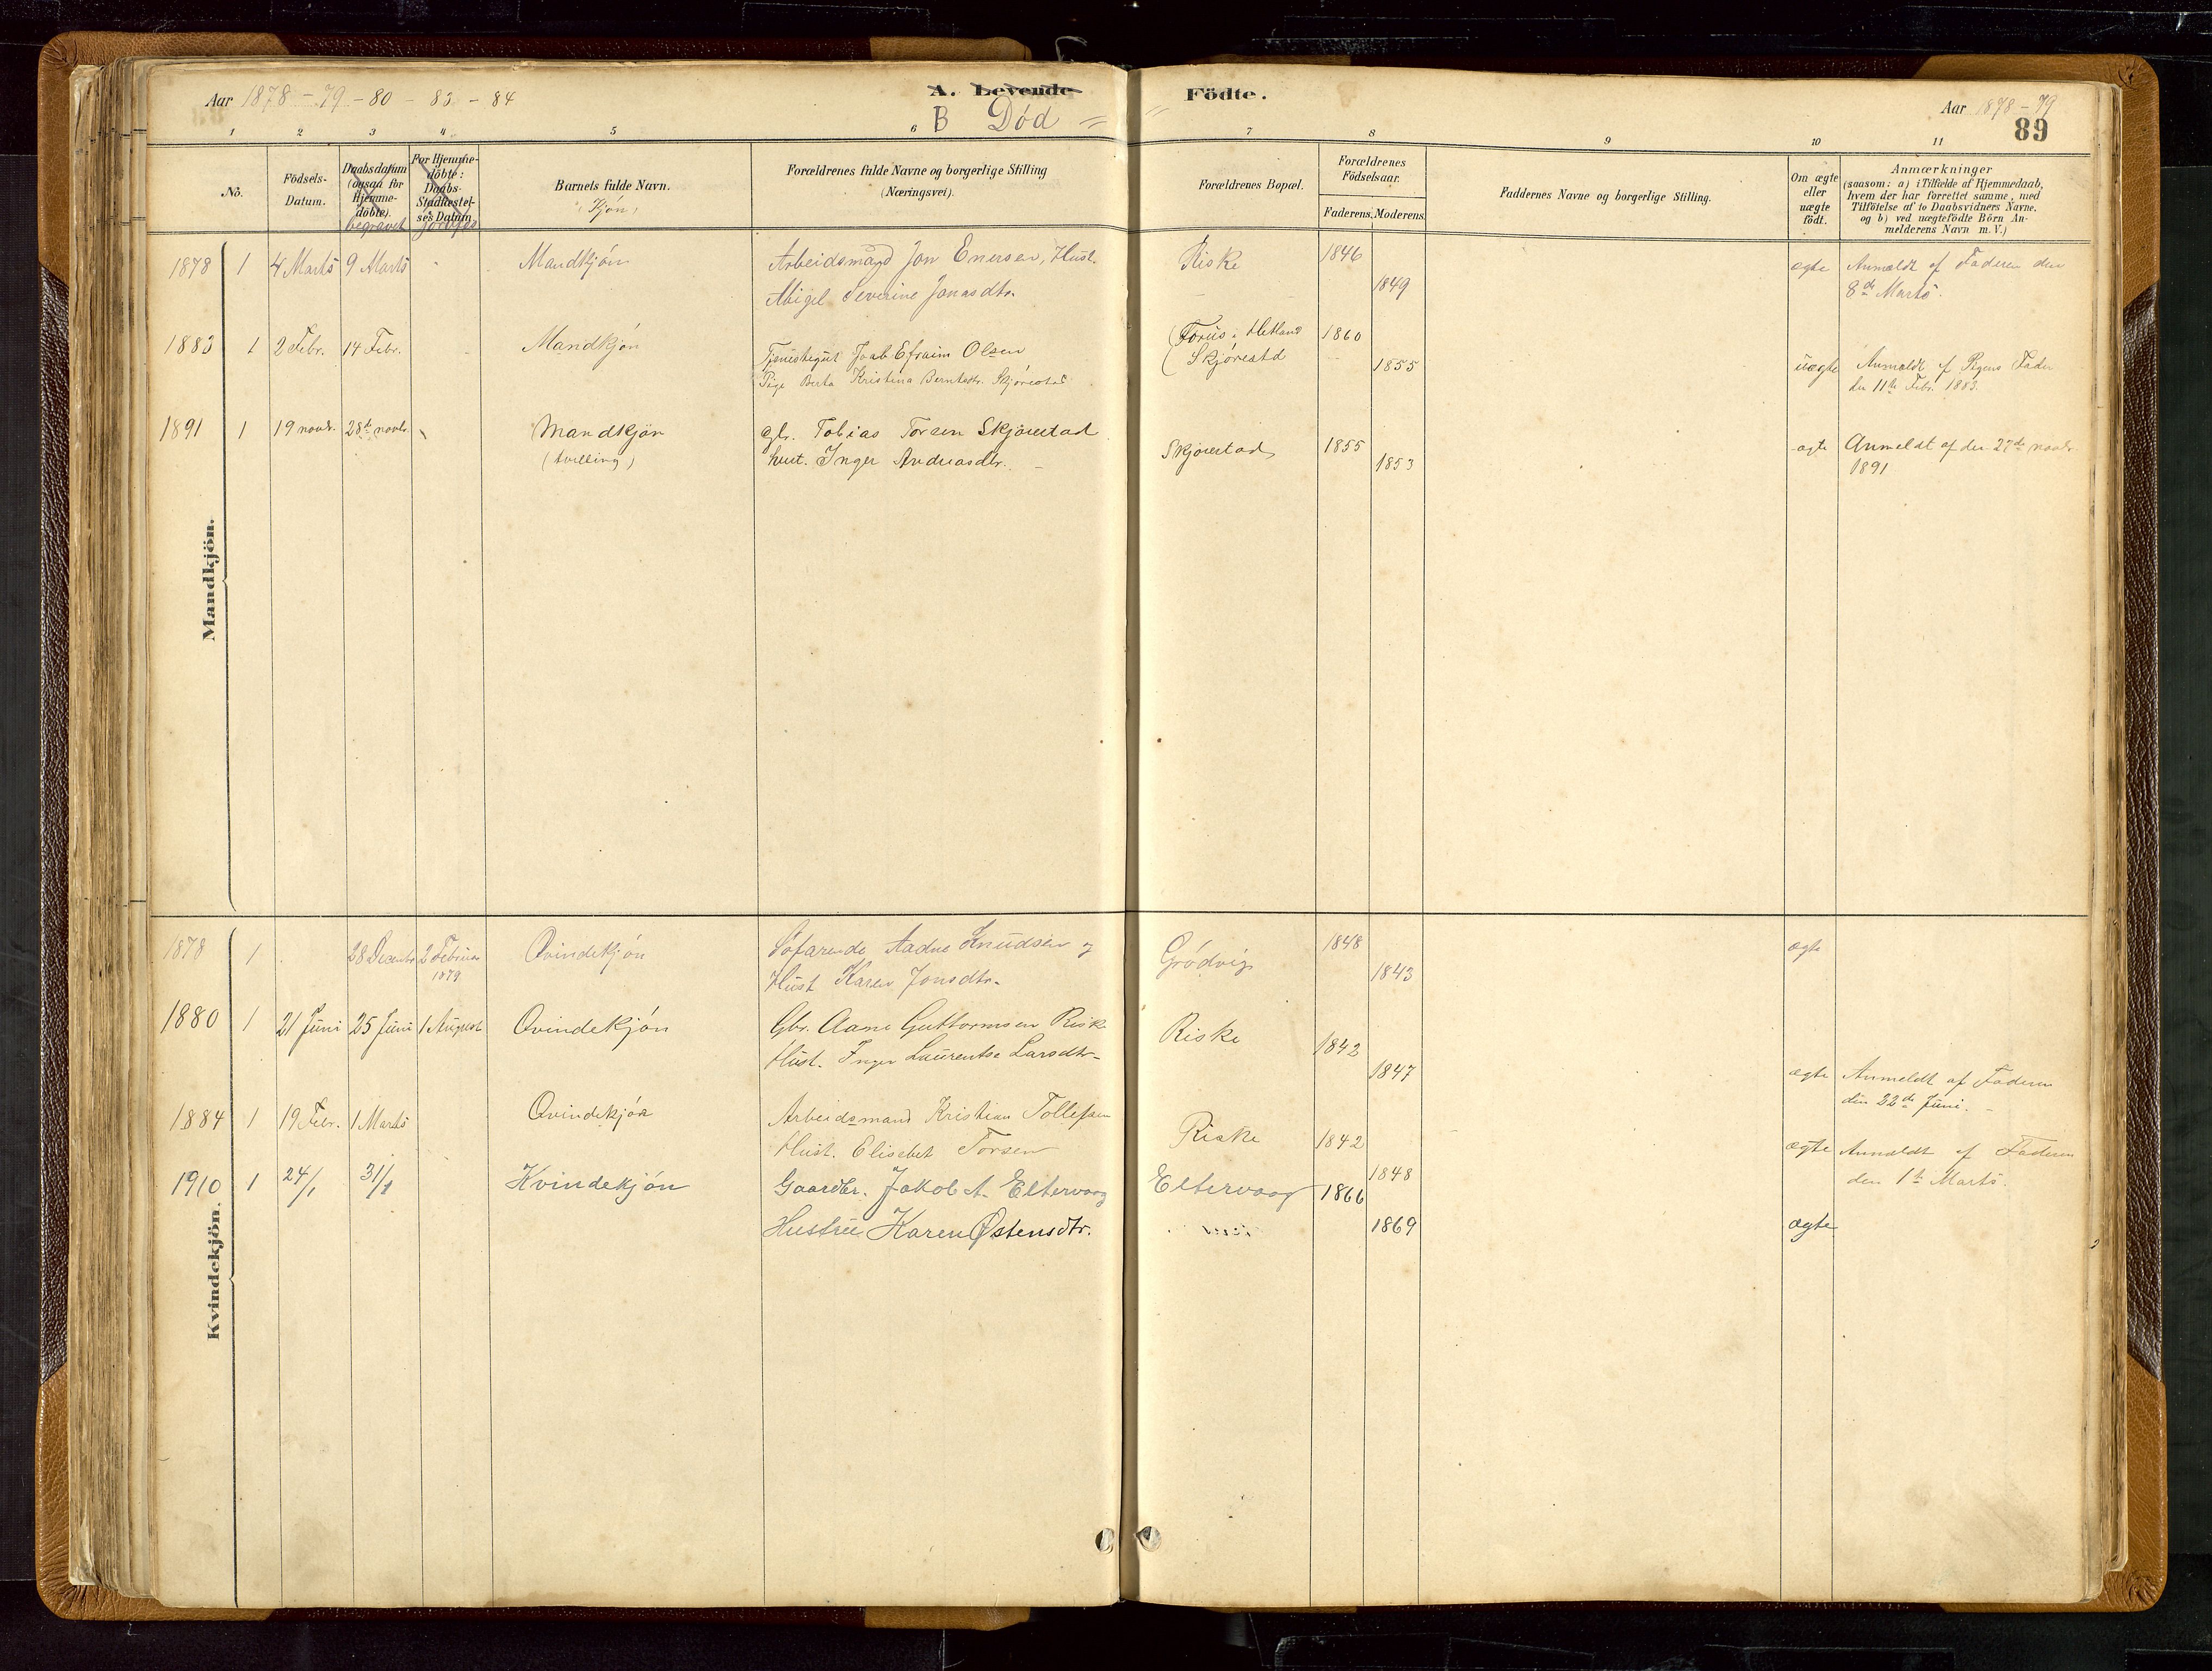 Aar 1878 - 79 - 80 - 83 - 84
A. Levende Födte.
B Død =
Aar 1878 - 79
89
1 2 3 4 5 6 7 8 9 10 11
No. Födsels-Datum. Daabsdatum (ogsaa for Hjemme-döbte). begravet For Hjemme-döbte: Daabs-Stadfæstel-ses Datum jordfæs Barnets fulde Navn. (Kjón) Forældrenes fulde Navne og borgerlige Stilling (Næringsvei). Forældrenes Bopæl. Forældrenes Födselsaar. Faderens. Moderens. Faddernes Navne og borgerlige Stilling. Om ægte eller uægte födt. Anmærkninger (saasom: a) i Tilfælde af Hjemmedaab, hvem der har forrettet samme, med Tilföielse af to Daabsvidners Navne, og b) ved uægtefödte Börn Anmelderens Navn m. V.)
Mandkjön.
1878 1 4 Marts 9 Marts Mandkjón Arbeidsmand Jon Enersen, Hust. Riske 1846 ægte Anmeldt af Faderen den
Abigel Severine Jonasdtr. 1849 8de Marts.
1883 1 2 Febr. 14 Febr. Mandkjón Tjenestegut Joab Efraim Olsen (Forus i Hetland 1860
Pige Berta Kristina Berntsdtr. Skjørestad (Skjørestd 1855 uægte Anmeldt af Pigens Fader
den 11te Febr. 1883.
1891 1 19 novbr. 28de novbr. Mandkjön gbr. Tobias Torsen Skjørestad Skjørestad 1855 ægte Anmeldt af den 27de novbr.
(tvilling) hust. Inger Andreasdtr. 1853 1891
Kvindekjön.
1878 1 28 Decembr 2 Februar Qvindekjón Søfarende Aadne Knudsen og Grødvig 1848 ægte
1879 Hust. Karen Jonsdtr. 1843
1880 1 21 Juni 25 Juni 1 August Qvindekjón Gbr. Aame Guttormsen Riske Riske 1842
Hust. Inger Laurentse Larsdtr. 1847 ægte Anmeldt af Faderen
den 22de Juni.
1884 1 19 Febr. 1 Marts Qvindekjón Arbeidsmand Kristian Tollefsen Riske 1842
Hust. Elisebet Torsen 1848 ægte Anmeldt af Faderen
den 1te Marts.
1910 1 24/1 31/1 Kvindekjón Gaardbr. Jakob A. Eltervaag Eltervaag 1866
Hustru Karen Østensdtr. 1869 ægte